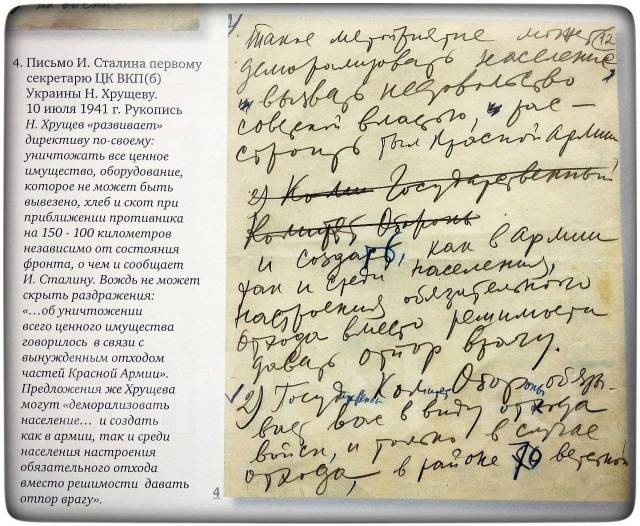 4. Письмо И. Сталина первому
секретарю ЦК ВКП(б)
Украины Н. Хрущеву.
10 июля 1941 г. Рукопись
Н. Хрущев «развивает»
директиву по-своему:
уничтожать все ценное
имущество, оборудование,
которое не может быть
вывезено, хлеб и скот при
приближении противника
на 150 - 100 километров
независимо от состояния
фронта, о чем и сообщает
И. Сталину. Вождь не может
скрыть раздражения:
«…об уничтожении
всего ценного имущества
говорилось в связи с
вынужденным отходом
частей Красной Армии».
Предложения же Хрущева
могут «деморализовать
население… и создать
как в армии, так и среди
населения настроения
обязательного отхода
вместо решимости давать
отпор врагу».
4
12
Такое мероприятие может
деморализовать население
вызвать недовольство
советской властью, рас–
строить тыл Красной Армии
2) Государственный
Комитет Обороны
и создать, как в армии
так и среди населения,
настроения обязательного
отхода вместо решимости
давать отпор врагу.
2) Государственный Комитет Обороны обязы-
вает вас в виду отхода
войск, и только в случае
отхода, в районе 70 верстной